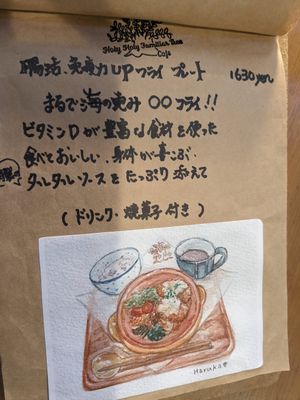 Holy Holy Familiar
Café
腸活、免疫力UPフライ プレート 1630yen
まるで海の恵み 〇〇フライ!!
ビタミンDが豊富な食材を使った
食べとおいしい、身体が喜こぶ、
タルタルソースをたっぷり添えて
(ドリンク・焼菓子付き)
Haruka